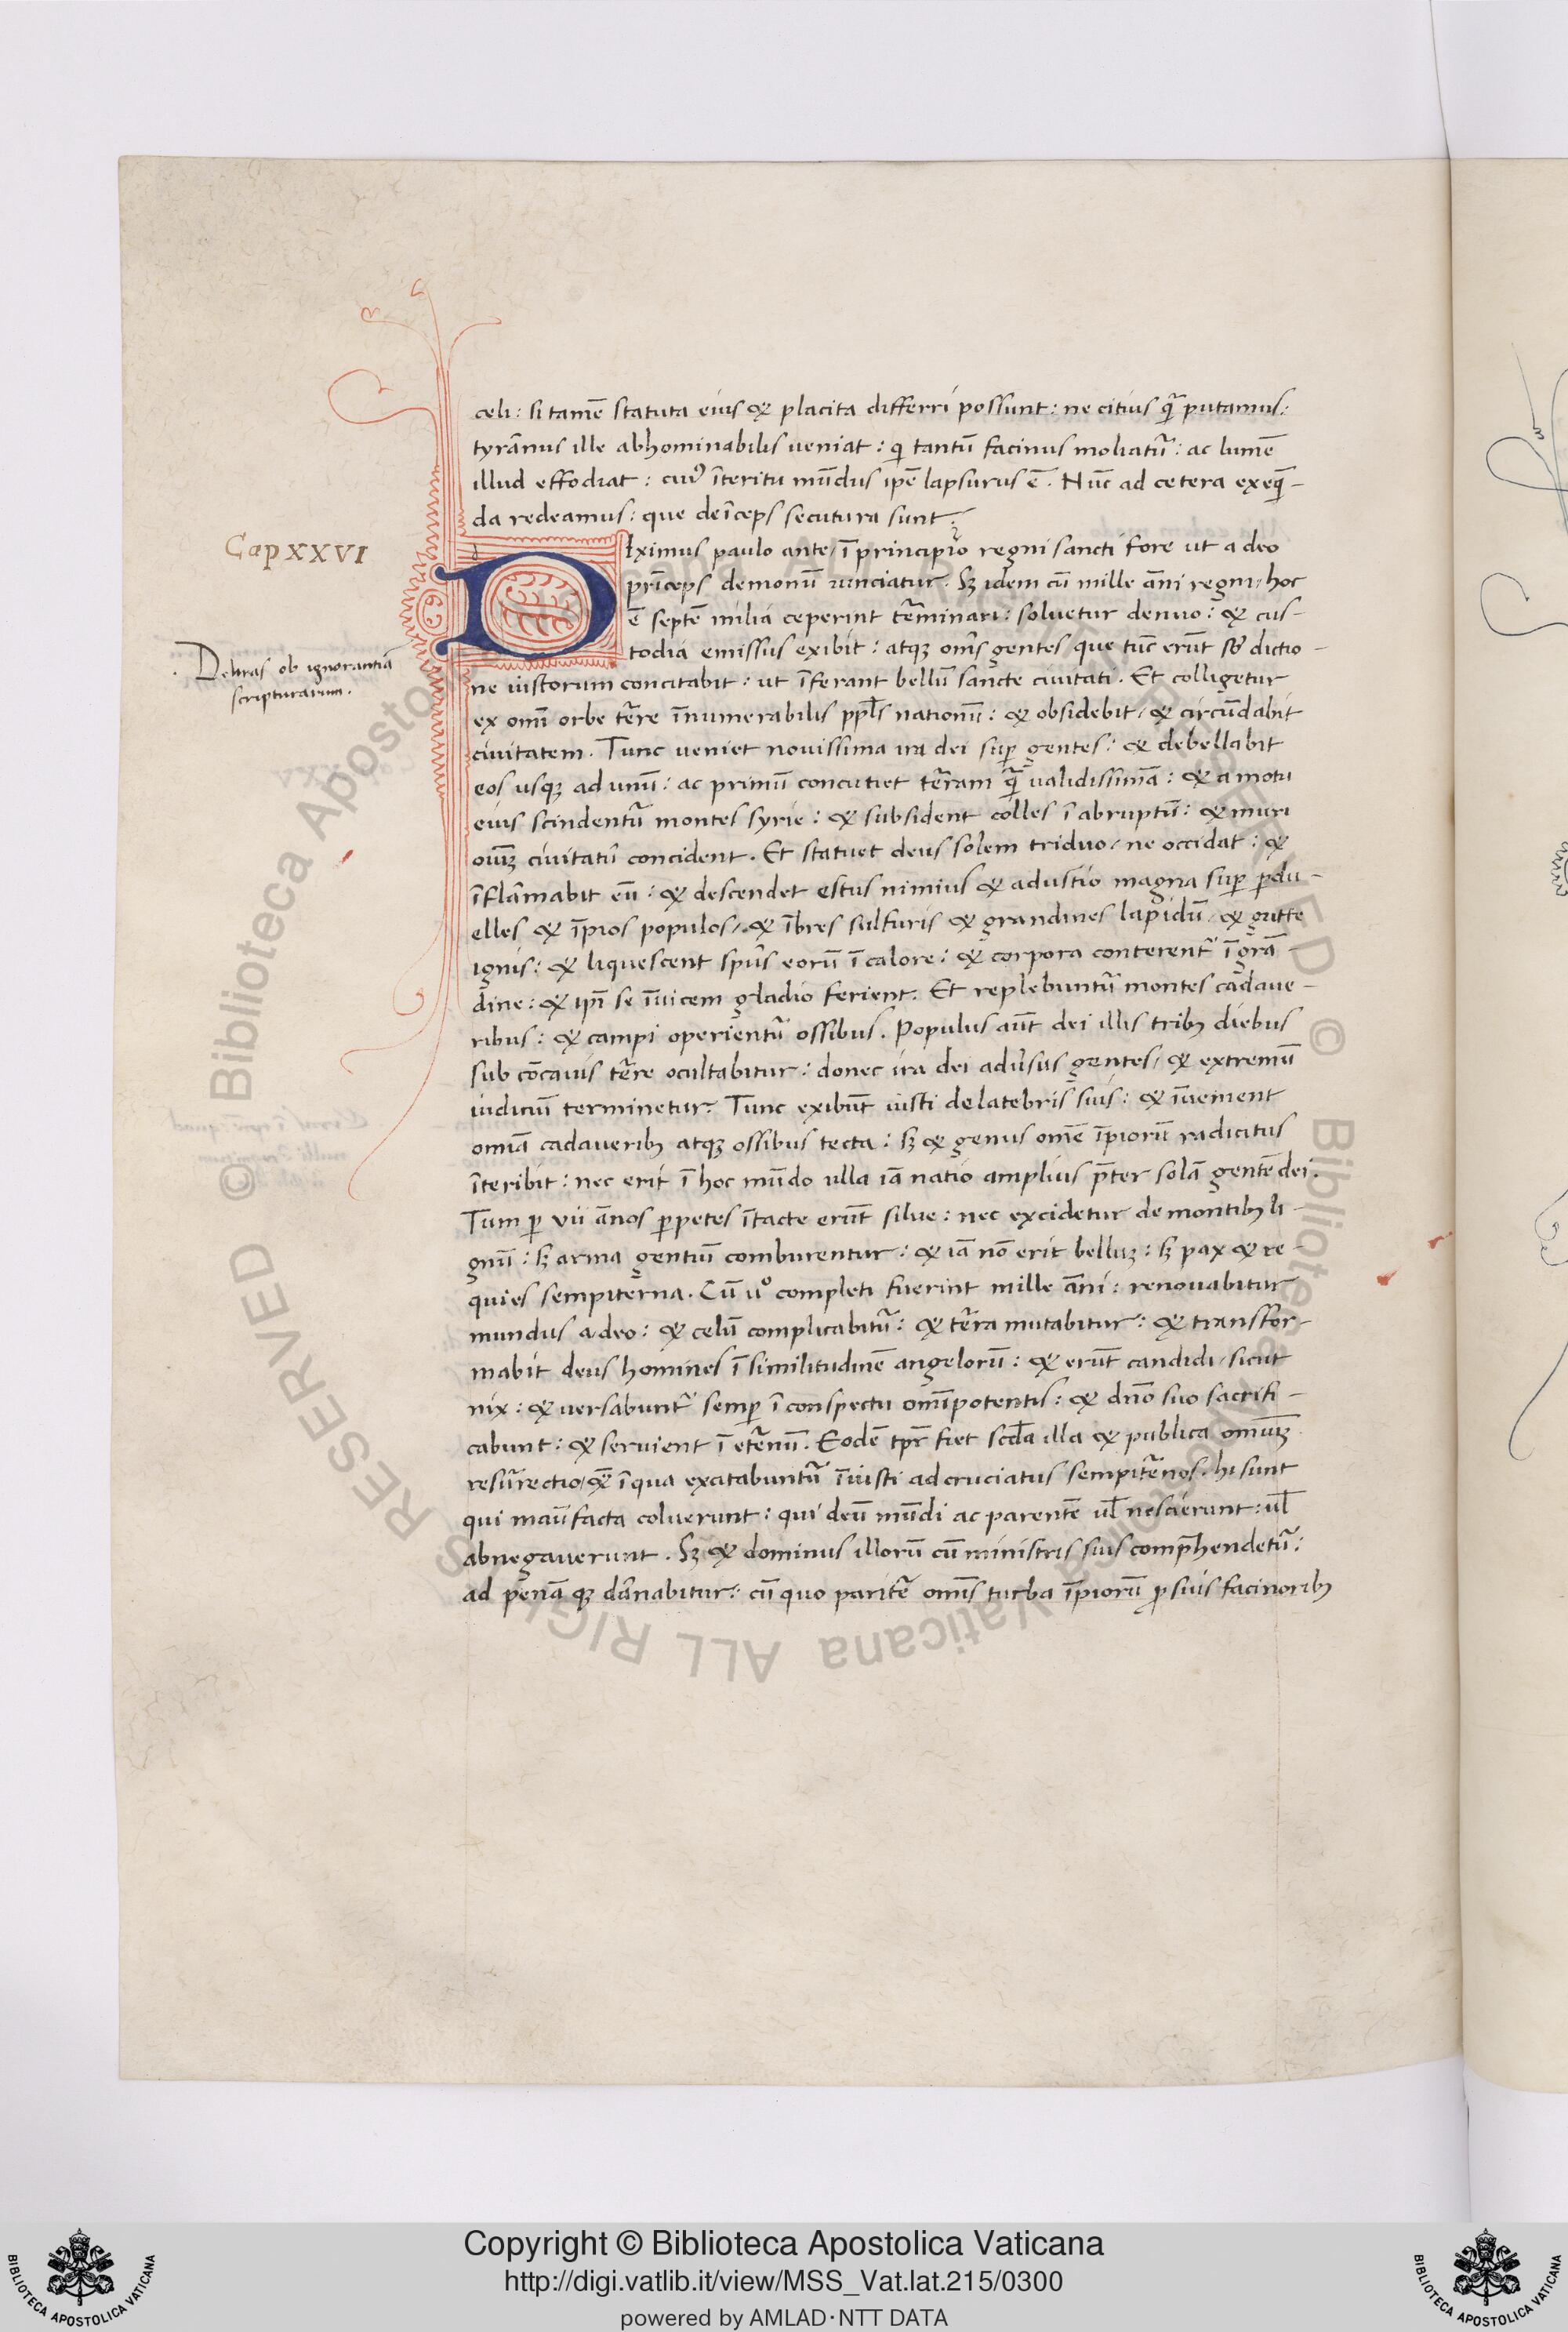 celi: si tamē statuta eius & placita differri possunt: ne citius q̃ putamus:
tyrānus ille abhominabilis veniat: qi tantū facinus moliatur̃: ac lumē
illud effodiat: cui9 īteritu mūdus ipē lapsurus ē. Nūc ad cetera exeq̄-
da redeamus: que deīceps secutura sunt.
Cap XXVI
DIximus paulo ante, ī principio regni sancti fore ut a deo
prīceps demonū vinciatur. Sꝫ idem cū mille āni regni, hoc
ē septē milia ceperint tr̃minari: soluetur denuo: & cus-
todia emissus exibit: atqꝫ om̄s gentes que tūc erūt sb̄ dictio-
Deliras ob ignorantiā
scripturarum.
ne iustorum concitabit: ut īferant bellū sancte civitati. Et colligetur
ex om̄i orbe tr̃re īnumerabilis ppl̄s nationū: & obsidebit, & circūdabit
civitatem. Tunc veniet novissima ira dei suꝑ gentes: & debellabit
eos usqꝫ ad unū: ac primū concutiet tr̃ram q̃ validissimā: & a motu
eius scindentur̃ montes syrie: & subsident colles ī abruptū: & muri
oīuꝫ civitatū concident. Et statuet deus solem triduo, ne occidat: &
īflāmabit eū: & descendet estus nimius & adustio magna suꝑ ꝑdu-
elles & īpios populos, & ībres sulfuris & grandines lapidū, & gutte
ignis: & liquescent sp̄us eorū ī calore: & corpora conterent̃ ī grā
dine: & ip̄i se īvicem gladio ferient. Et replebuntur̃ montes cadave-
ribus: & campi operientur̃ ossibus. Populus aūt dei illis tribꝫ diebus
sub cōcavis tr̃re ocultabitur: donec ira dei adv̄sus gentes, & extremū
iudiciū terminetur. Tunc exibūt iusti de latebris suis: & īvenient
omīa cadaveribꝫ atqꝫ ossibus tecta: sꝫ & genus omē īpiorū radicitus
īteribit: nec erit ī hoc mūdo ulla iā natio amplius p̄ter solā gentē dei.
Tum ꝑ vii ānos ꝑpetes ītacte erūt silve: nec excidetur de montibꝫ li-
gnū: sꝫ arma gentiū comburentur: & iā nō erit belluꝫ: sꝫ pax & re-
quies sempiterna. Cū vo completi fuerint mille āni: renovabitur
mundus a deo: & celū complicabitur̃: & tr̃ra mutabitur: & transfor-
mabit deus homines ī similitudinē angelorū: & erūt candidi, sicut
nix: & versabunt̃ semꝑ ī conspectu omīpotentis: & dn̄o suo sacrifi-
cabunt: & servient ī etr̃nū. Eodē tpr̄ fiet scd̄a illa & publica omīuꝫ
resur̄rectio, & ī qua excitabuntur̃ īiusti ad cruciatus sempitr̃nos. hi sunt
qui manūfacta coluerunt: qui deū mūdi ac parentē ul̄ nescierunt: ul̄
abnegaverunt. Sꝫ & dominus illorū cū ministris suis compr̄hendetur̃:
ad penā qꝫ dānabitur: cū quo paritr̃ omīs turba īpiorū ꝓ suis facinoribꝫ
© Biblioteca Apostolica Vaticana ALL RIGHTS RESERVED
Copyright © Biblioteca Apostolica Vaticana
http://digi.vatlib.it/view/MSS_Vat.lat.215/0300
powered by AMLAD·NTT DATA
BIBLIOTECA APOSTOLICA VATICANA
BIBLIOTECA APOSTOLICA VATICANA